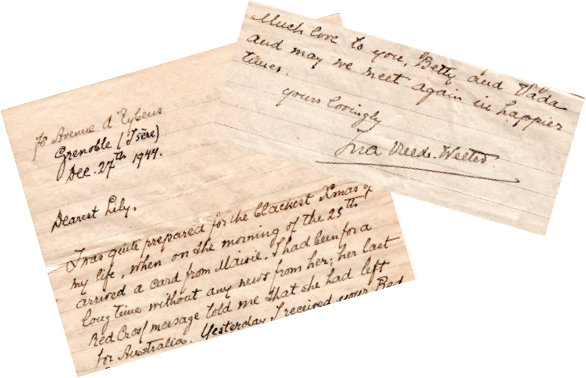 Avenue d'Eybens
Grenoble (Isère)
Dec. 27th 1944.
Dearest Lily,
I was quite prepared for the blackest Xmas of
my life, when on the morning of the 25th
arrived a card from Maisie. I had been for a
long time without any news from her; her last
Red Cross message told me that she had left
for Australia. Yesterday I received your Red
Much love to you, Betty and Dada
and may we meet again in happier
times.
yours lovingly